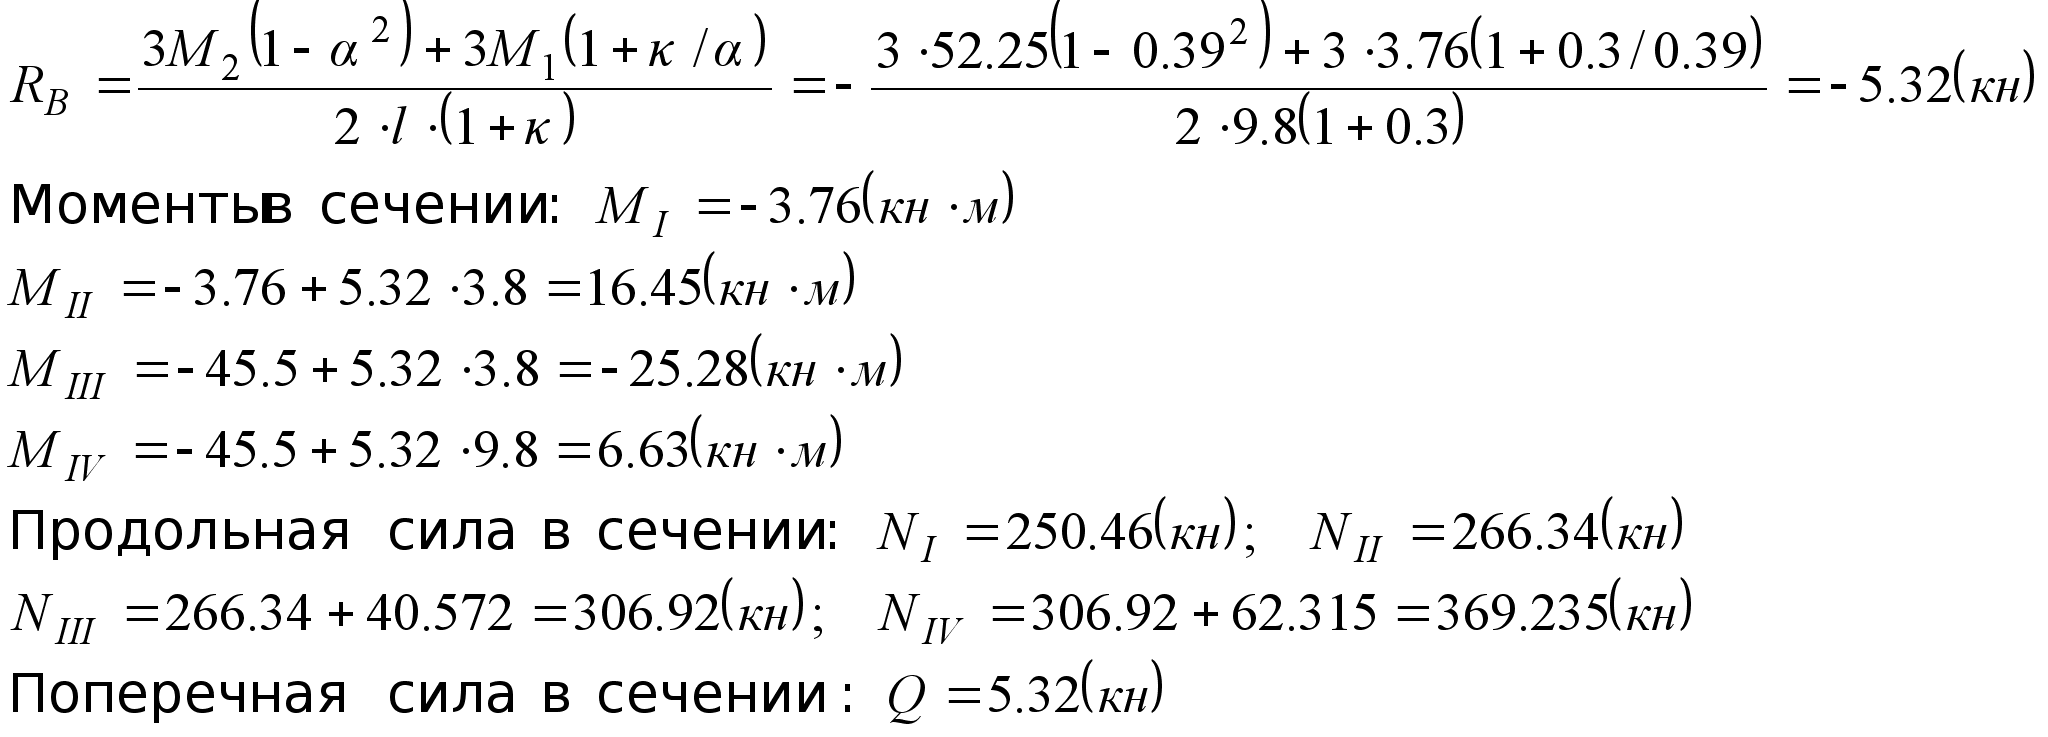 R_B = \frac{3M_2(1 - α^2) + 3M_1(1 + к / α)}{2 · l · (1 + к)} = - \frac{3 · 52.25(1 - 0.39^2) + 3 · 3.76(1 + 0.3 / 0.39)}{2 · 9.8(1 + 0.3)} = - 5.32(кн)
Моменты в сечении: M_I = - 3.76(кн · м)
M_{II} = - 3.76 + 5.32 · 3.8 = 16.45(кн · м)
M_{III} = - 45.5 + 5.32 · 3.8 = - 25.28(кн · м)
M_{IV} = - 45.5 + 5.32 · 9.8 = 6.63(кн · м)
Продольная сила в сечении: N_I = 250.46(кн); N_{II} = 266.34(кн)
N_{III} = 266.34 + 40.572 = 306.92(кн); N_{IV} = 306.92 + 62.315 = 369.235(кн)
Поперечная сила в сечении : Q = 5.32(кн)